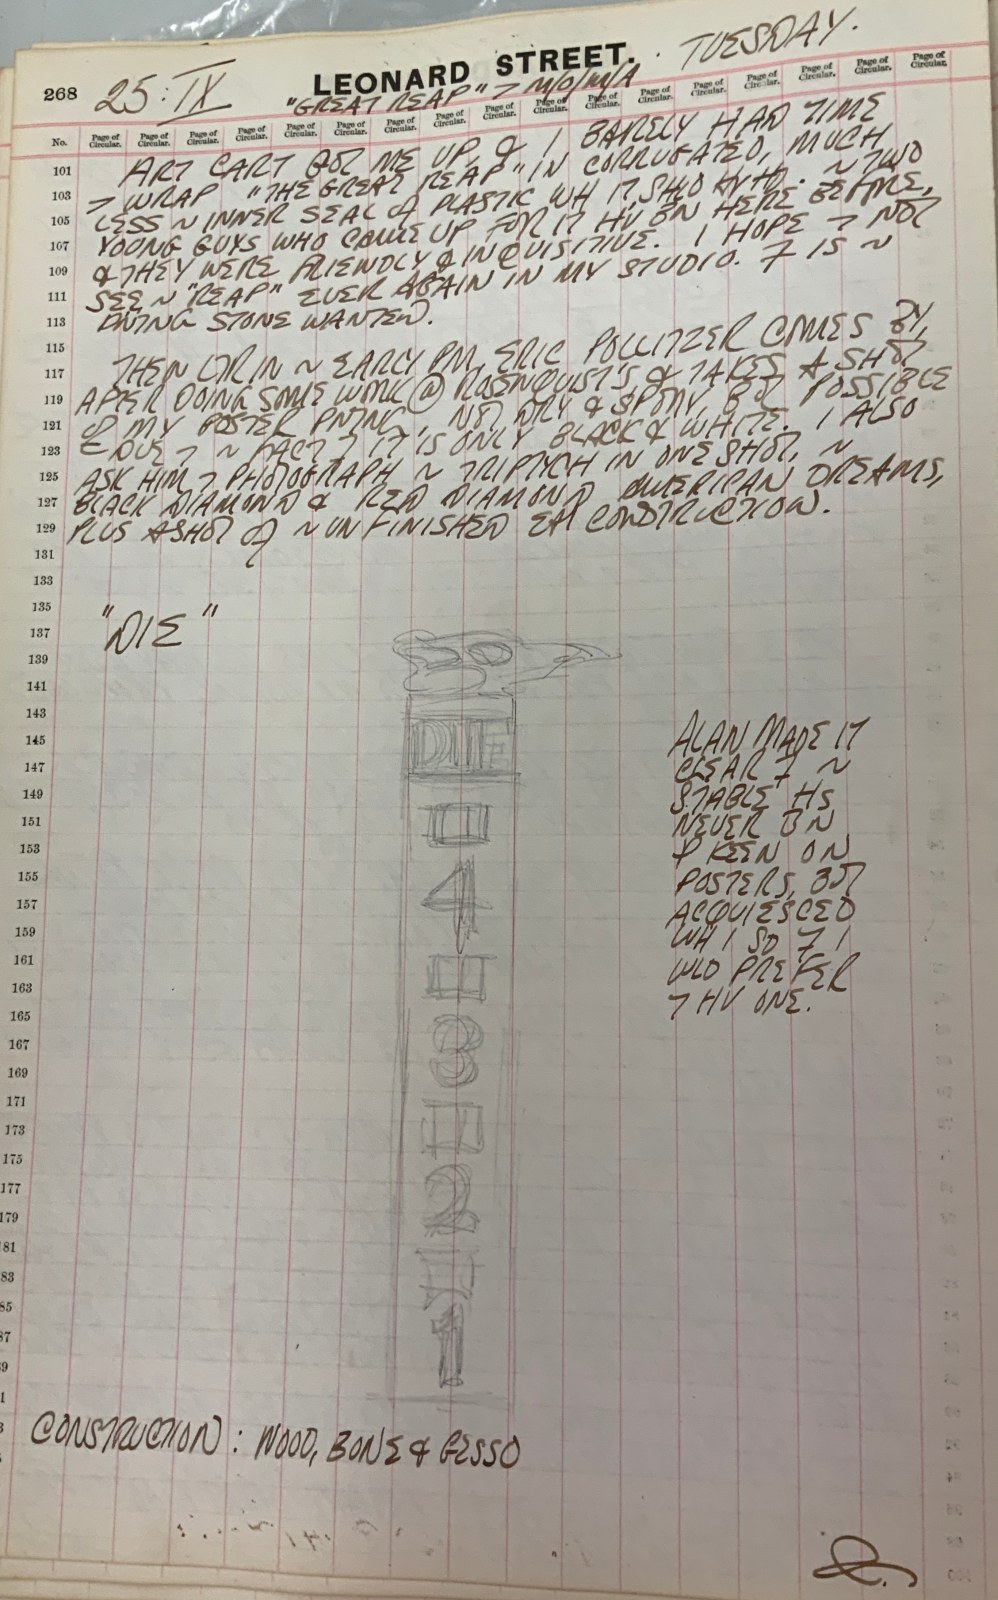 268 25:IX LEONARD STREET. TUESDAY.
"GREAT REAP" 7 M/O/M/A
No. Page of Circular. Page of Circular. Page of Circular. Page of Circular. Page of Circular. Page of Circular. Page of Circular. Page of Circular. Page of Circular. Page of Circular. Page of Circular. Page of Circular. Page of Circular. Page of Circular. Page of Circular. Page of Circular. Page of Circular.
101 ART CART GOT ME UP, & I BARELY HAD TIME
103 7 WRAP "THE GREAT REAP" IN CORRUGATED, MUCH
105 LESS ~ INNER SEAL of PLASTIC WH IT SHLD HV HD. ~ TWO
107 YOUNG GUYS WHO COME UP FOR IT HV BN HERE BEFORE,
109 & THEY WERE FRIENDLY & INQUISITIVE. I HOPE 7 NOT
111 SEE ~ "REAP" EVER AGAIN IN MY STUDIO. 7 IS ~
113 PNTNG STONE WANTED.
115
117 THEN LTR IN ~ EARLY PM, ERIC POLLITZER COMES BY,
119 AFTER DOING SOME WORK @ ROSENQUIST'S & TAKES A SHOT
121 of MY POSTER PNTNG, NOT DRY & SPOTTY, BUT POSSIBLE
123 DUE 7 ~ FACT 7 IT IS ONLY BLACK & WHITE. I ALSO
125 ASK HIM 7 PHOTOGRAPH ~ TRIPTYCH IN ONE SHOT, ~
127 BLACK DIAMOND & RED DIAMOND AMERICAN DREAMS,
129 PLUS A SHOT of ~ UNFINISHED EAT CONSTRUCTION.
131
133
135
137 "DIE"
139
141
143
145 DIE
147
149
151
153
155
157 4
159
161
163
165
167 3
169
171
173
175
177 2
179
81
83
85
87 1
9
1
ALAN MADE IT
CLEAR 7 ~
STABLE HS
NEVER BN
KEEN ON
POSTERS, BUT
ACQUIESCED
WH I SD 7 I
WLD PREFER
7 HV ONE.
CONSTRUCTION: WOOD, BONE & GESSO